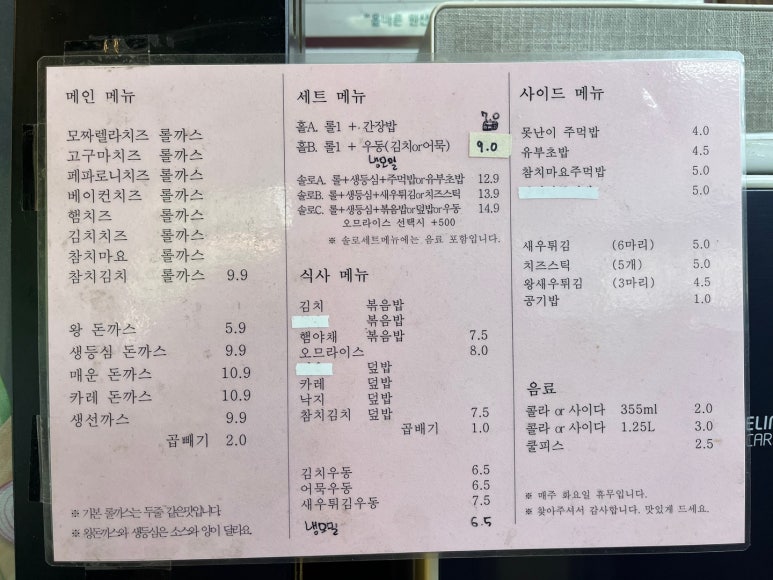 메인 메뉴
모짜렐라치즈 롤까스
고구마치즈 롤까스
페파로니치즈 롤까스
베이컨치즈 롤까스
햄치즈 롤까스
김치치즈 롤까스
참치마요 롤까스
참치김치 롤까스 9.9
왕 돈까스 5.9
생등심 돈까스 9.9
매운 돈까스 10.9
카레 돈까스 10.9
생선까스 9.9
곱빼기 2.0
※ 기본 롤까스는 두줄 같은맛입니다.
※ 왕돈까스와 생등심은 소스와 양이 달라요.
세트 메뉴
홀A. 롤1 + 간장밥 7.0
홀B. 롤1 + 우동(김치or어묵) 9.0
냉모밀
솔로A. 롤+생등심+주먹밥or유부초밥 12.9
솔로B. 롤+생등심+새우튀김or치즈스틱 13.9
솔로C. 롤+생등심+볶음밥or덮밥or우동 14.9
오므라이스 선택시 +500
※ 솔로세트메뉴에는 음료 포함입니다.
식사 메뉴
김치 볶음밥
볶음밥
햄야채 볶음밥 7.5
오므라이스 8.0
덮밥
카레 덮밥
낙지 덮밥
참치김치 덮밥 7.5
곱배기 1.0
김치우동 6.5
어묵우동 6.5
새우튀김우동 7.5
냉모밀 6.5
사이드 메뉴
못난이 주먹밥 4.0
유부초밥 4.5
참치마요주먹밥 5.0
5.0
새우튀김 (6마리) 5.0
치즈스틱 (5개) 5.0
왕새우튀김 (3마리) 4.5
공기밥 1.0
음료
콜라 or 사이다 355ml 2.0
콜라 or 사이다 1.25L 3.0
쿨피스 2.5
※ 매주 화요일 휴무입니다.
※ 찾아주셔서 감사합니다. 맛있게 드세요.